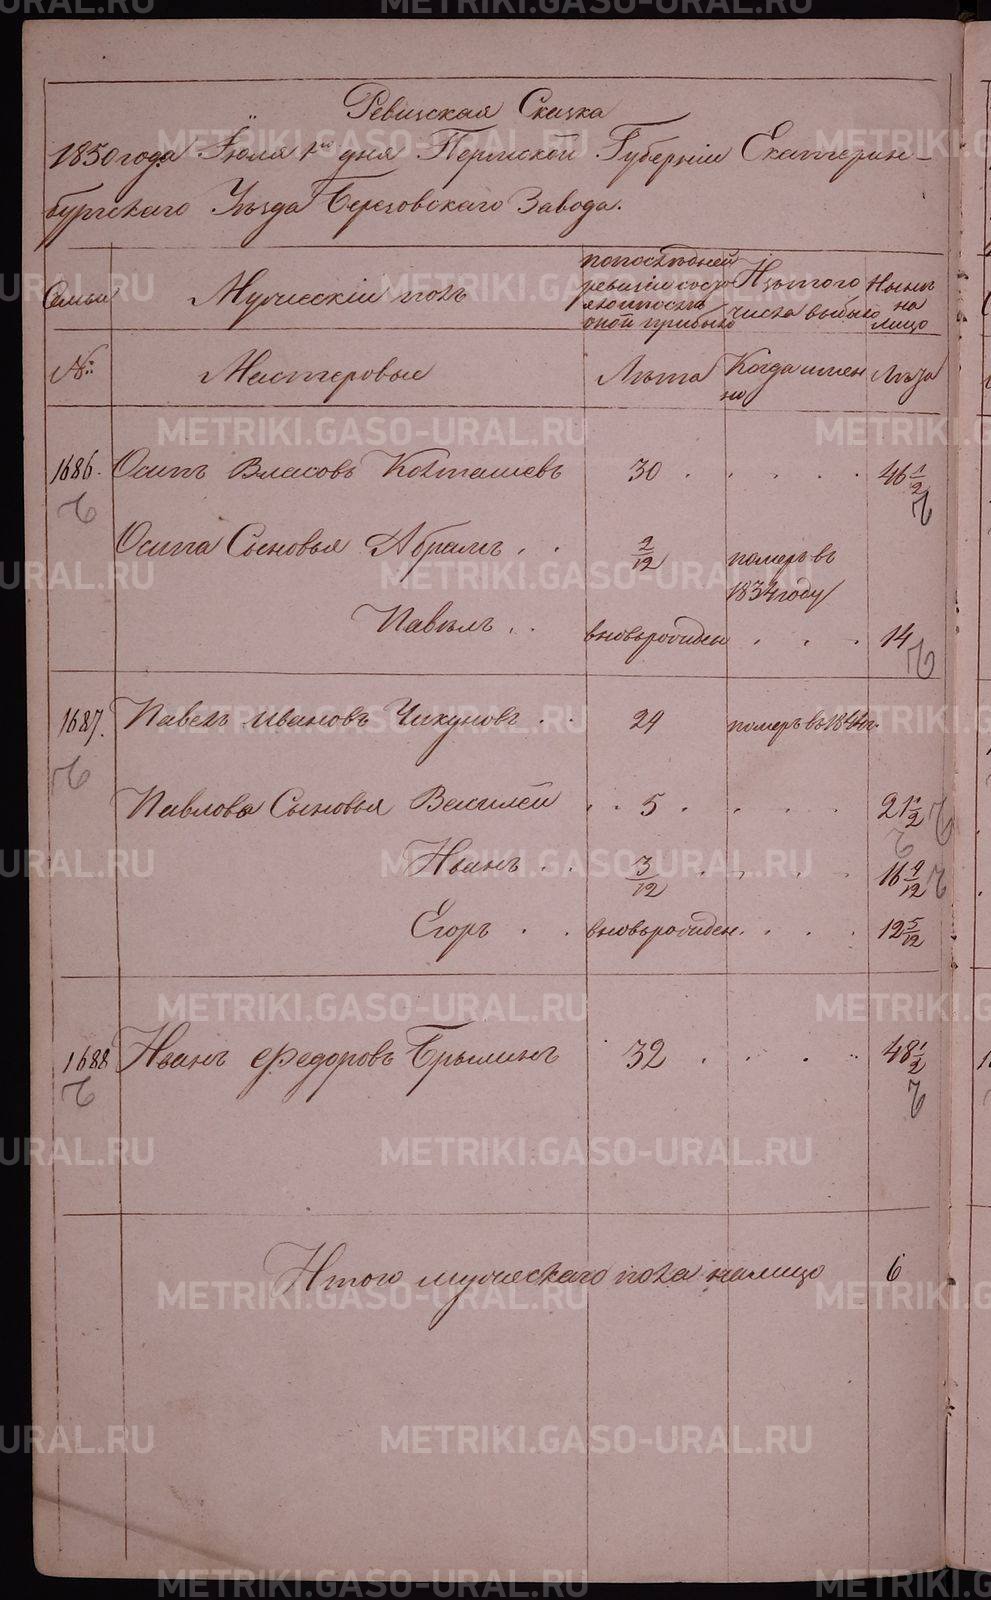 Ревизская Сказка
1850 года Іюля 1го дня Пермской Губерніи Екатерин-
бургскаго Уѣзда Березовскаго Завода.
Семьи
Мужескій полъ
по последней ревизіи состояло и послѣ оной прибыло
Изъ того числа выбыло
Нынѣ на лицо
№:
Мастеровые
Лѣта
Когда имен
но
Лѣта
1686. Осипъ Власовъ 30 46 1/2
Осипа Сыновья Абрамъ 2/12 померъ въ
1834 году
Павелъ вновьрожден 14
1687. Павелъ Ивановъ Чикуновъ 29 померъ въ
Павлова Сыновья Василей 5 21 1/2
Иванъ 3/12 16 9/12
Егоръ вновьрожден. 12 5/12
1688 Иванъ Федоровъ 32 48 1/2
Итого мужескаго пола налицо 6
METRIKI.GASO-URAL.RU